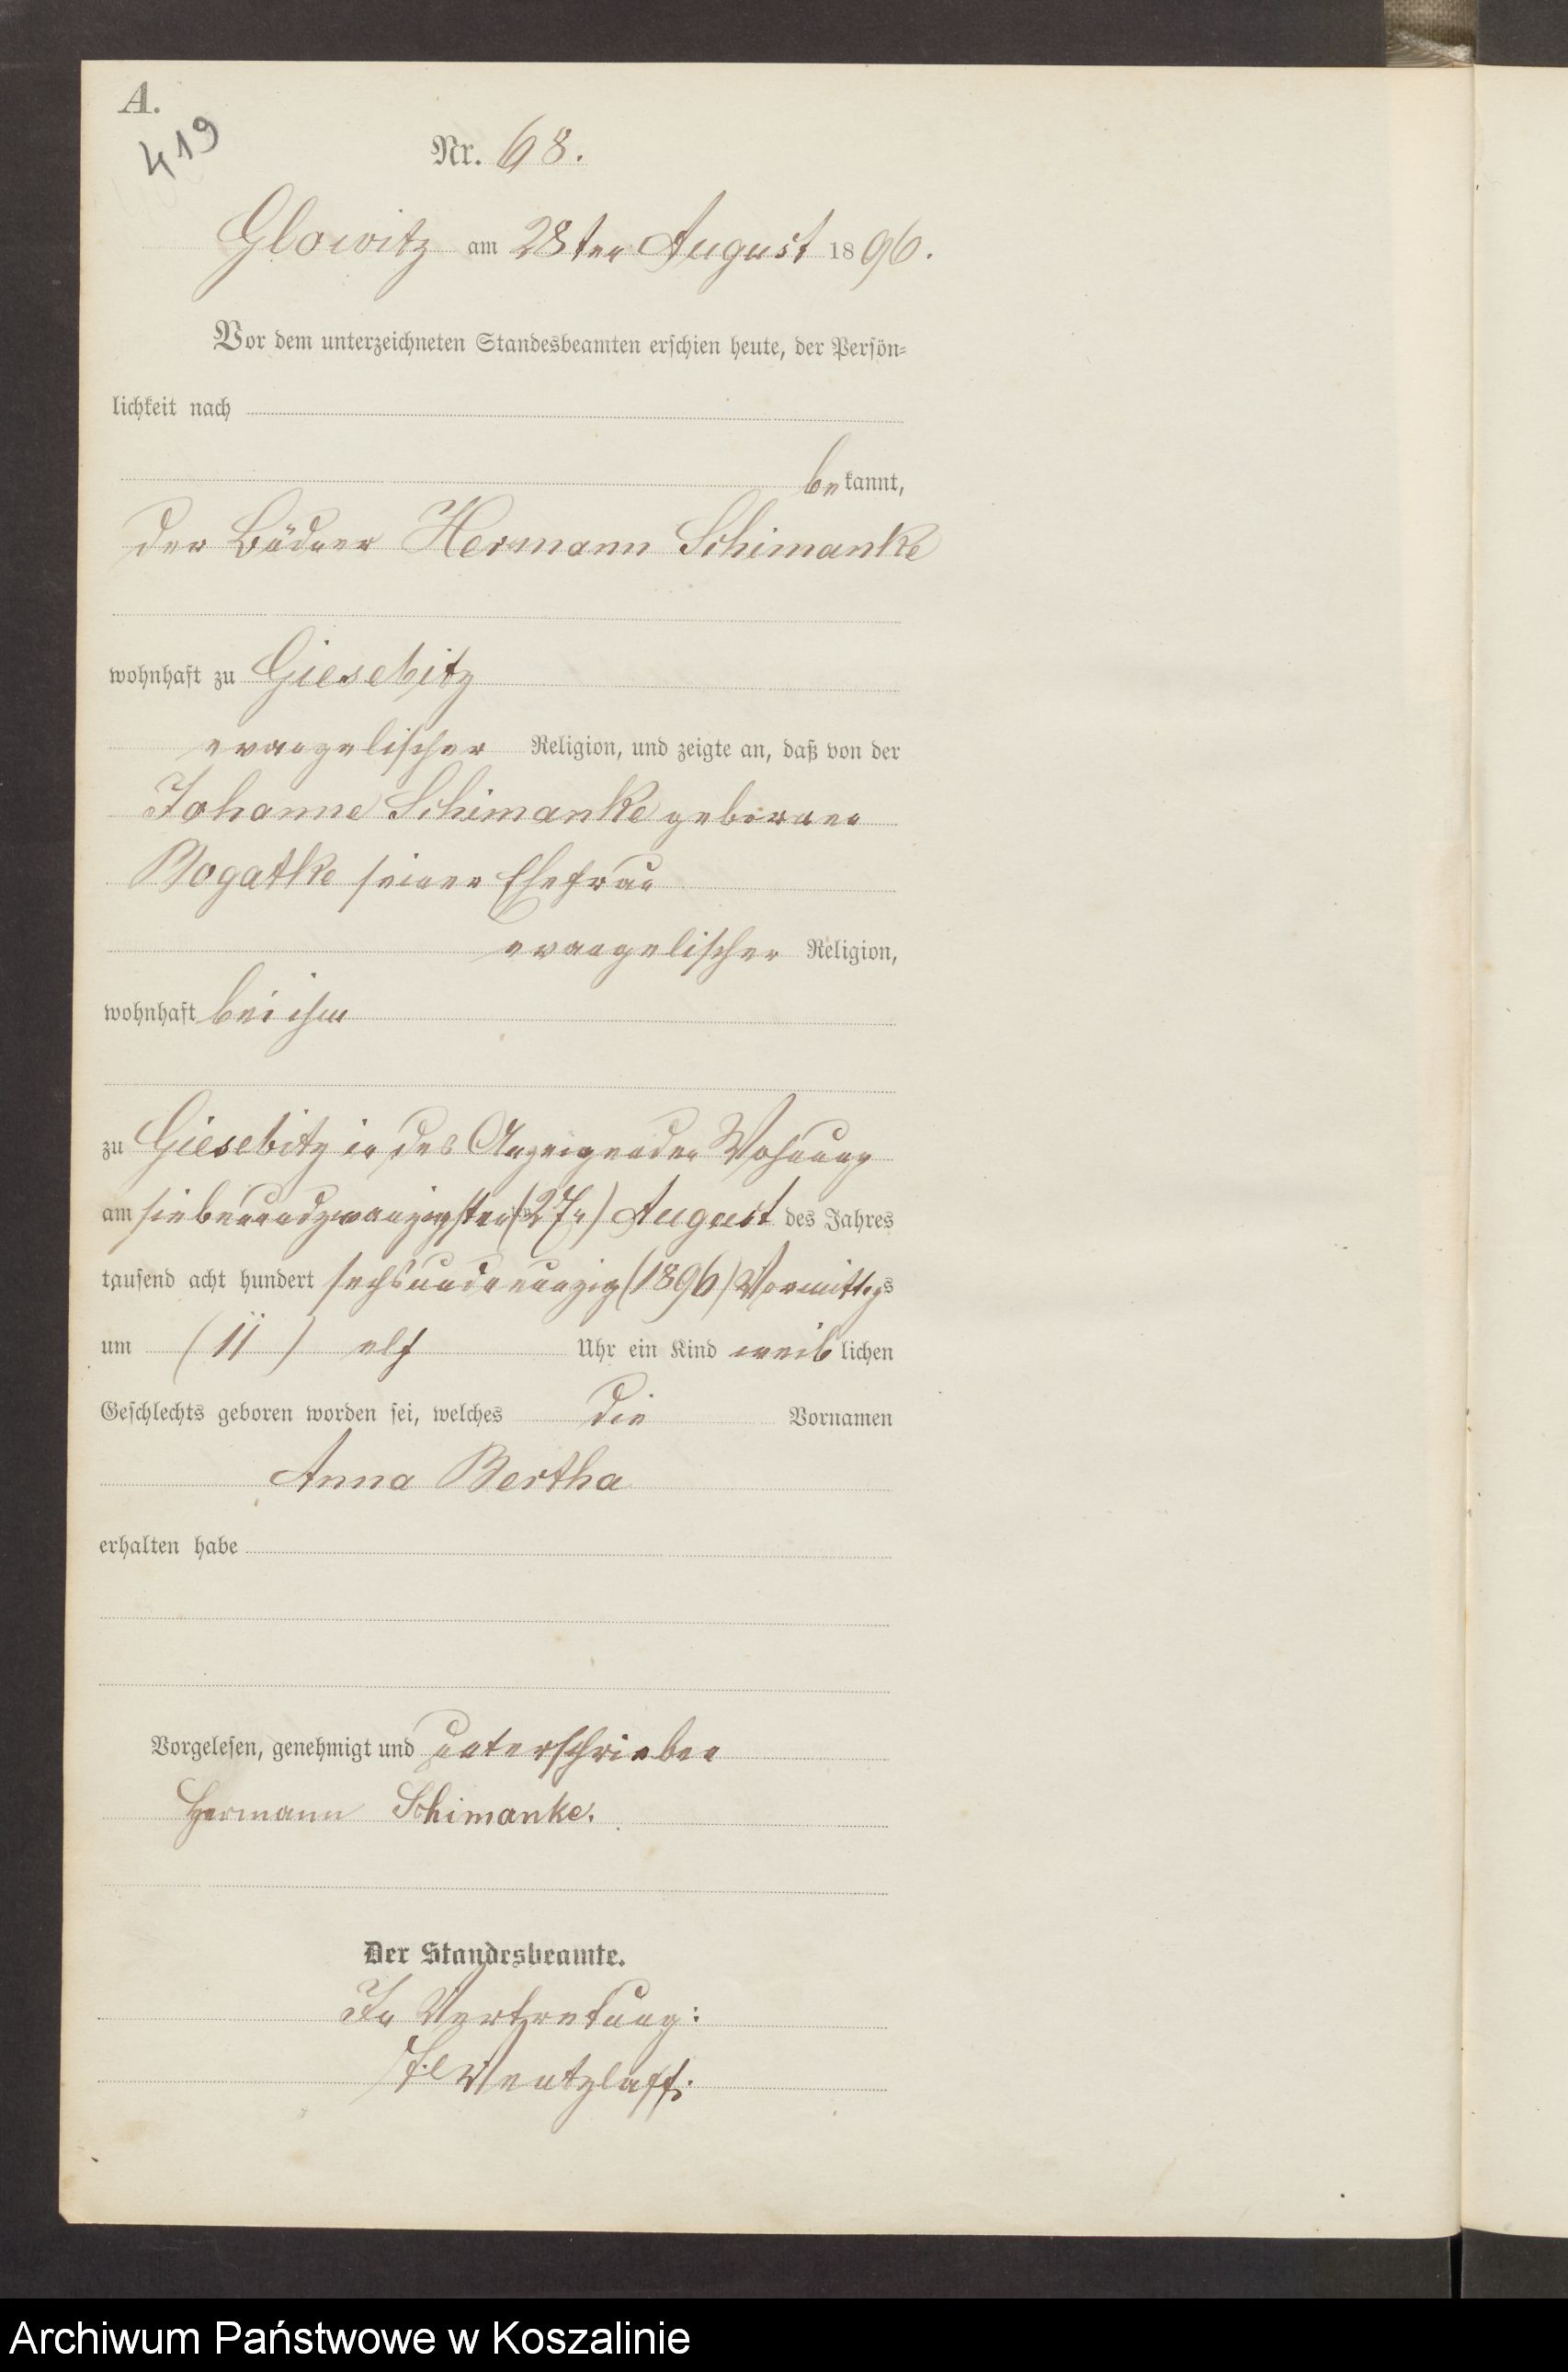 A.
419
Nr. 68.
Glowitz am 28ten August 1896.
Vor dem unterzeichneten Standesbeamten erschien heute, der Persön-
lichkeit nach
bekannt,
der Büdner Hermann Schimanke
wohnhaft zu Giesebitz
evangelischer Religion, und zeigte an, daß von der
Johanne Schimanke geborenen
Bogatke seiner Ehefrau
evangelischer Religion,
wohnhaft bei ihm
zu Giesebitz in des Anzeigenden Wohnung
am siebenundzwanzigsten (27n) August des Jahres
tausend acht hundert sechsundneunzig (1896) Vormittags
um (11) elf Uhr ein Kind weiblichen
Geschlechts geboren worden sei, welches die Vornamen
Anna Bertha
erhalten habe
Vorgelesen, genehmigt und unterschrieben
Hermann Schimanke.
Der Standesbeamte.
In Vertretung:
Wentzlaff.
Archiwum Państwowe w Koszalinie